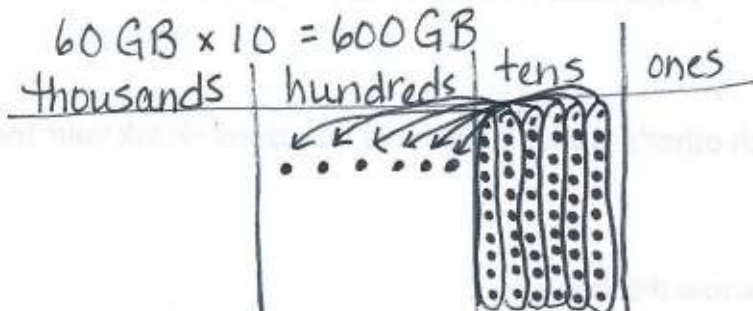 60 GB x 10 = 600 GB
thousands hundreds tens ones